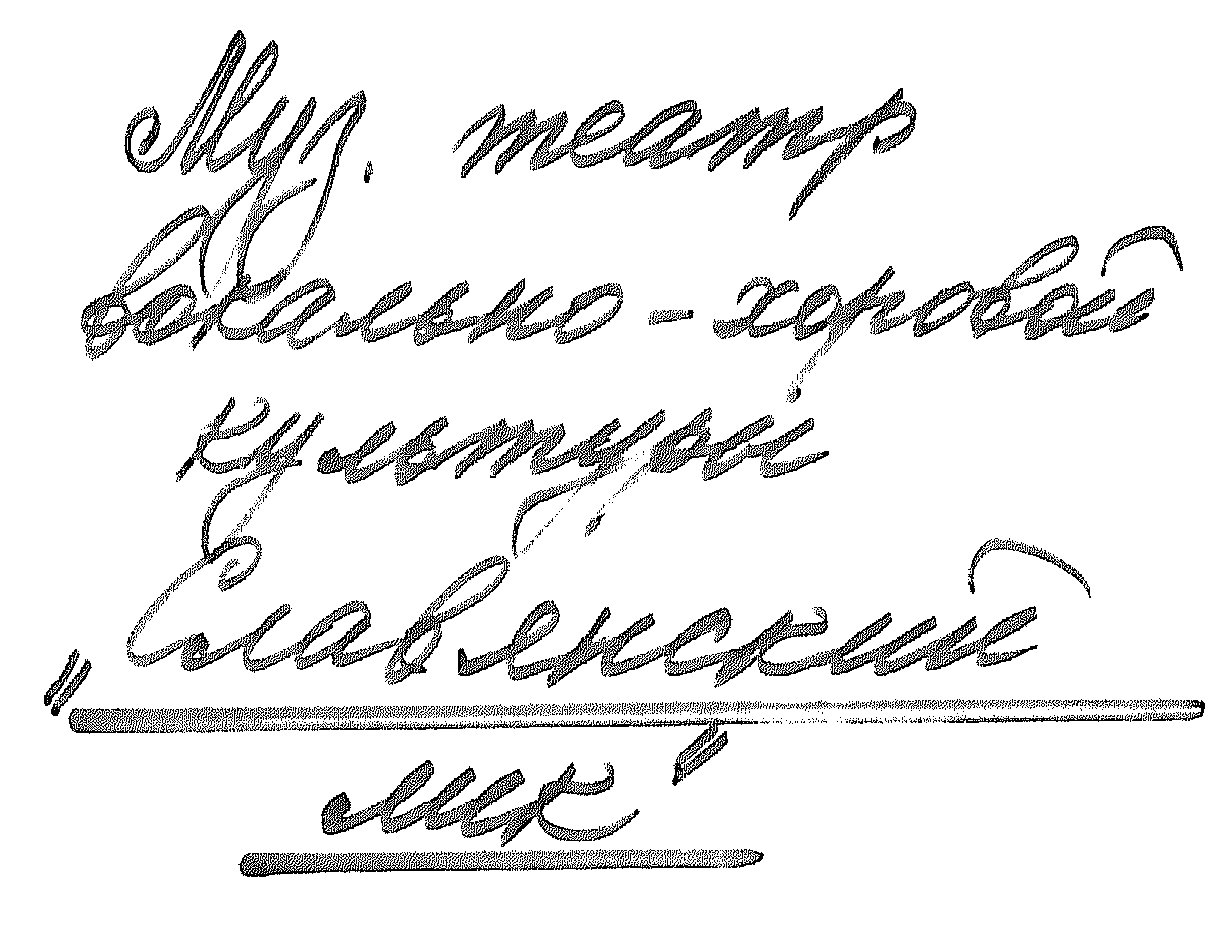 Муз. театр
вокально-хоровой
культуры
"Славянский
лик"